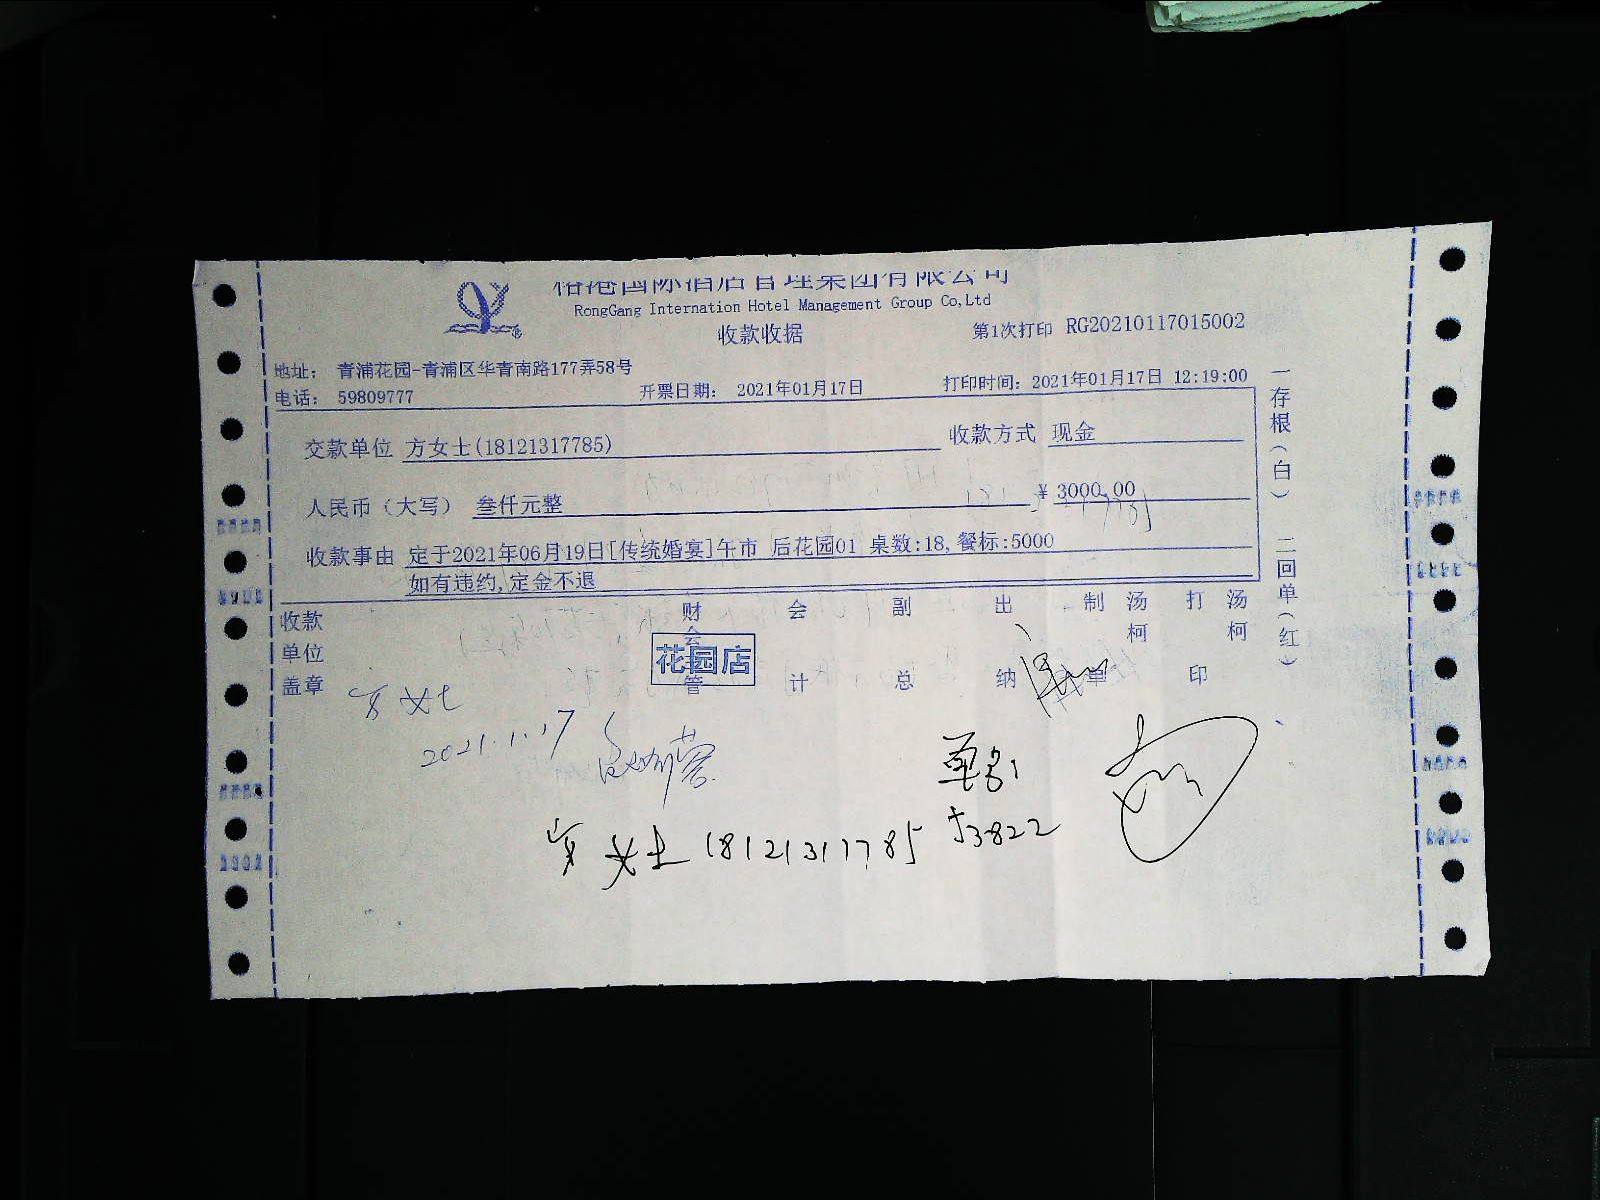 国际酒店管理集团有限公司
RongGang Internation Hotel Management Group Co,Ltd
收款收据
第1次打印 RG20210117015002
地址： 青浦花园-青浦区华青南路177弄58号
电话： 59809777
开票日期： 2021年01月17日
打印时间：2021年01月17日 12:19:00
交款单位 方女士(18121317785)
收款方式 现金
人民币（大写） 叁仟元整
¥ 3000.00
收款事由 定于2021年06月19日[传统婚宴]午市 后花园01 桌数:18,餐标:5000
如有违约,定金不退
收款单位盖章
财会主管
会计
副总
出纳
制单 汤柯
打印 汤柯
一存根（白） 二回单（红）
花园店
2021.1.17
女士 18121317785